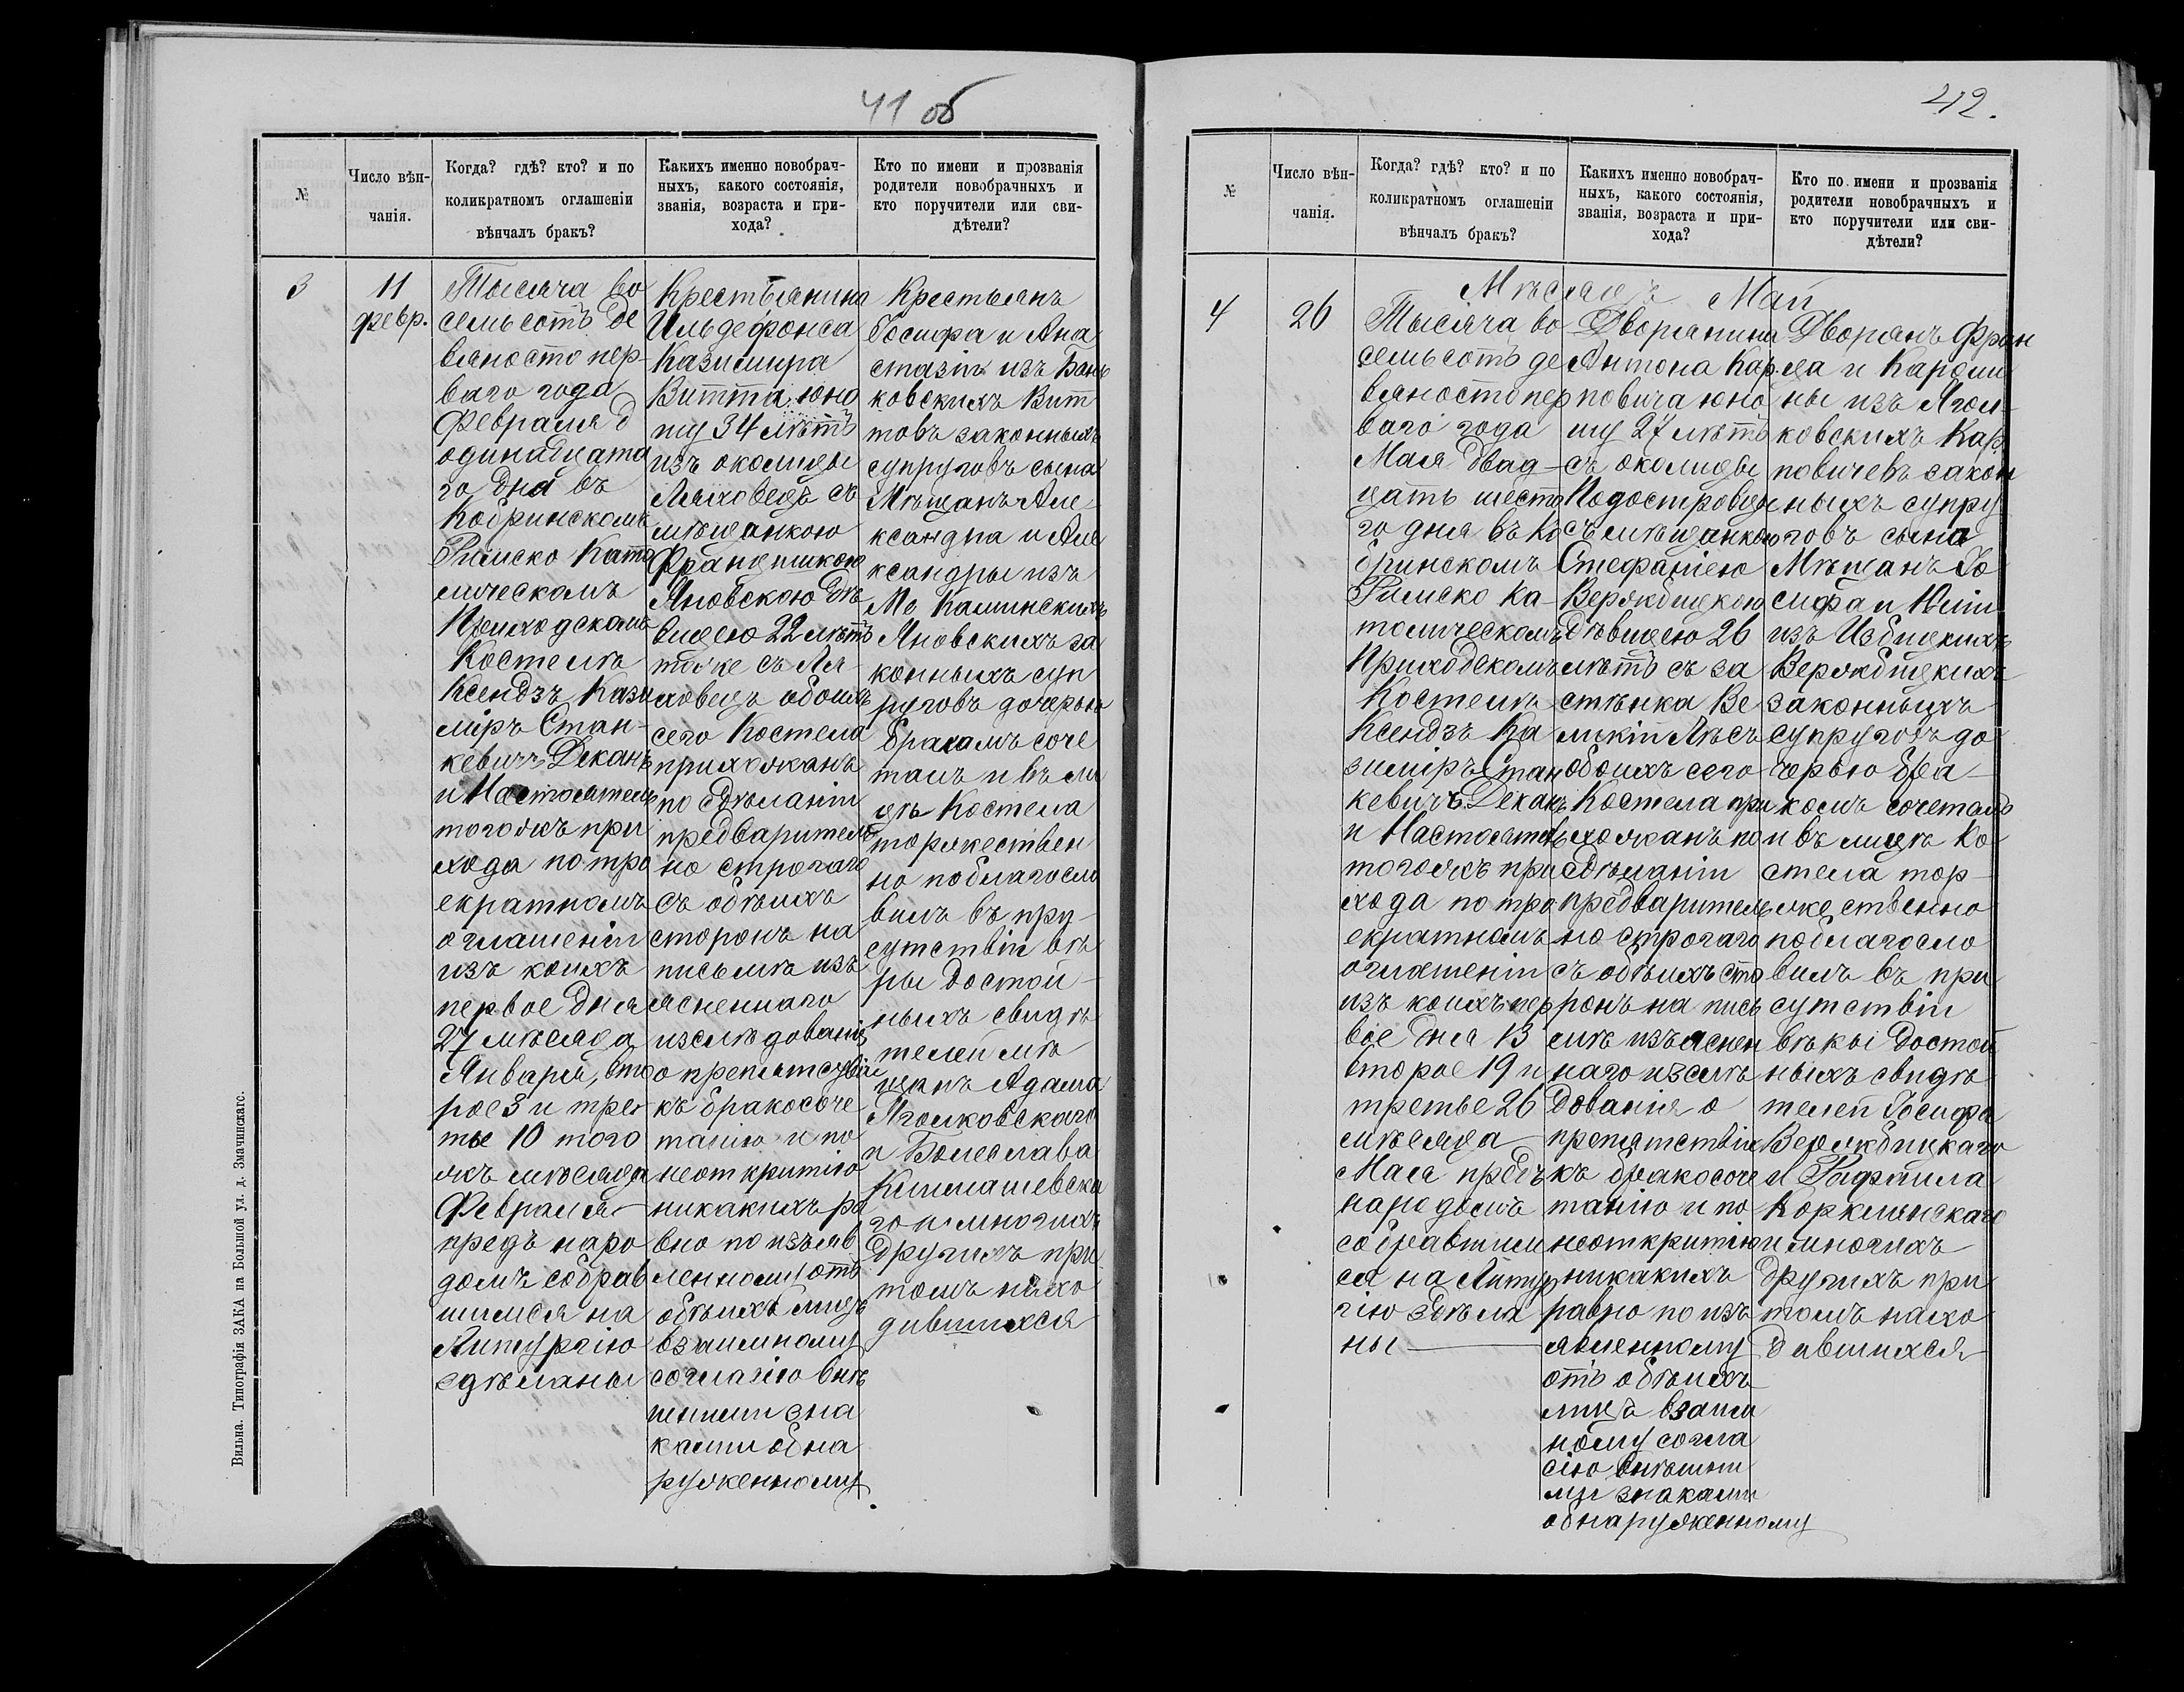 41 об
№
Число вѣн-
чанія.
Когда? гдѣ? кто? и по
коликратномъ оглашеніи
вѣнчалъ бракъ?
Какихъ именно новобрач-
ныхъ, какого состоянія,
званія, возраста и при-
хода?
Кто по имени и прозванія
родители новобрачныхъ и
кто поручители или сви-
дѣтели?
3
11
февр.
Тысяча во
семьсотъ де
вяносто пер-
ваго года
Февраля д
одинадцата
го дна въ
Кобринскомъ
Римско Като
лическомъ
Приходскомъ
Костелѣ
Ксендзъ Кази
міръ Стан-
кевичъ Деканъ
и Настоятель
тогожъ при
хода по тро
екратномъ
оглашеніи
изъ коихъ
первое дня
27 мѣсяца
Января, вто
рое 3 и тре
тье 10 того
жъ мѣсяца
Февраля
предъ наро
домъ собрав
шимся на
Литургію
сдѣланы
Крестьянина
Ильдефонса
Казимира
Витта, юно
шу 34 лѣтъ
изъ околицы
Ляховецъ съ
мѣщанкою
Францишкою
Яновскою дѣ
вицею 22 лѣтъ
тоже съ Ля
ховецъ обоихъ
сего Костела
прихожанъ
по сдѣланіи
предваритель
но строгаго
съ обѣихъ
сторонъ на
письмѣ изъ
ясненнаго
изслѣдованія
о препятствіи
къ бракосоче
танію и по
неоткритію
никакихъ ра
вно по изъяв
ленному отъ
обѣихъ лицъ
взаимному
согласію внѣ
шними зна
ками обна
руженному
Крестьянъ
Іосифа и Ана
стазіи изъ Бань
ковскихъ Вит
товъ законныхъ
супруговъ сына
Мѣщанъ Але
ксандра и Але
ксандры изъ
Мо Каминскихъ
Яновскихъ за
конныхъ суп
руговъ дочерью
бракомъ соче
талъ и въ ли
цѣ Костела
торжествен
но поблагосло
вилъ въ при-
сутствіи вѣ
ры достой-
ныхъ свидѣ
телей мѣ
щанъ Адама
Яголковскаго
и Болеслава
Климашевска
го и многихъ
другихъ при
томъ нахо
дившихся
Вильна. Типографія ЗАКА на Большой ул. д. Значинскаго.
42.
№
Число вѣн-
чанія.
Когда? гдѣ? кто? и по
коликратномъ оглашеніи
вѣнчалъ бракъ?
Какихъ именно новобрач-
ныхъ, какого состоянія,
званія, возраста и при-
хода?
Кто по имени и прозванія
родители новобрачныхъ и
кто поручители или сви-
дѣтели?
Мѣсяцъ Май
4
26
Тысяча во
семьсотъ де
вяносто пер
ваго года
Мая двад-
цать шеста
го дня въ Ко
бринскомъ
Римско Ка-
толическомъ
Приходскомъ
Костелѣ
Ксендзъ Ка
зимиръ Стан
кевичъ Деканъ
и Настоятель
тогожъ при
хода по тро
екратномъ
оглашеніи
изъ коихъ пер
вое дня 13
второе 19 и
третье 26
мѣсяца
Мая предъ
народомъ
собравшим
ся на Литур
гію сдѣла
ны
Дворянина
Антона Кар
повича юно
шу 27 лѣтъ
съ околицы
Подостровцы
съ мѣщанкою
Стефаніею
Вержбицкою
дѣвицею 26
лѣтъ съ за
стѣнка Ве
лькій Лѣсъ
обоихъ сего
Костела при
хожанъ по
сдѣланіи
предваритель
но строгаго
съ обѣихъ сто
ронъ на пись
мѣ изъяснен
наго изслѣ
дованія о
препятствіи
къ бракосоче
танію и по
неоткритію
никакихъ
равно по изъ
явленному
отъ обѣихъ
лицъ взаим
ному согла
сію внѣшни
ми знаками
обнаруженному
Дворянъ Фран
ца и Кароли
ны изъ Ягол-
ковскихъ Кар
повичевъ закон
ныхъ супру
говъ сына
Мѣщанъ Іо
сифа и Юліи
изъ Избицкихъ
Вержбицкихъ
законныхъ
супруговъ до
черью бра-
комъ сочеталъ
и въ лицѣ Ко
стела тор-
жественно
поблагосло
вилъ въ при
сутствіи
вѣры достой
ныхъ свидѣ
телей Іосифа
Вержбицкаго
и Рафаила
Коркленскаго
и многихъ
другихъ при
томъ нахо
дившихся